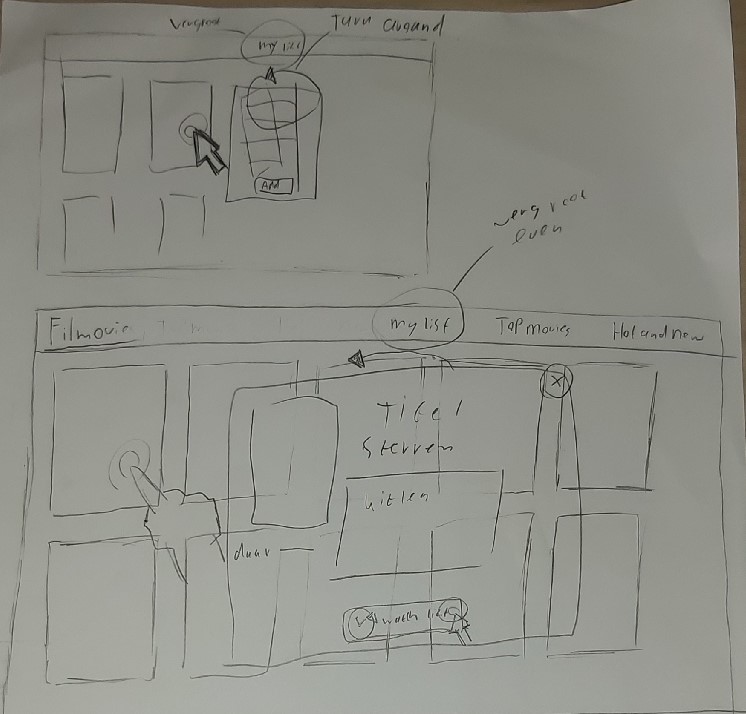 vergroot
my list
Turn around
Add
vergroot
even
Filmovie
my list
Top movies
Hot and new
X
Titel
Sterren
uitleg
duur
watch list